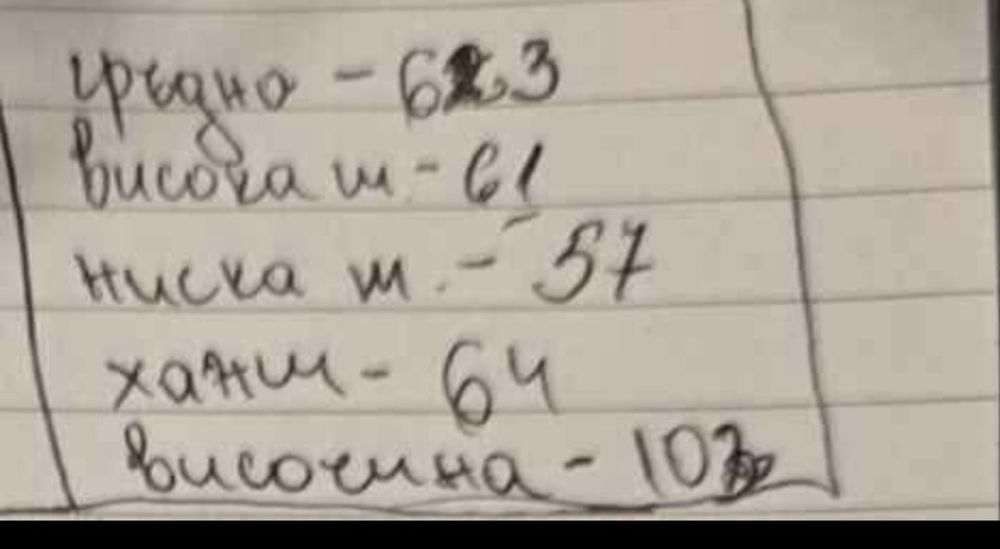 гръдна - 63
висока т - 61
ниска т. - 57
ханш - 64
височина - 10